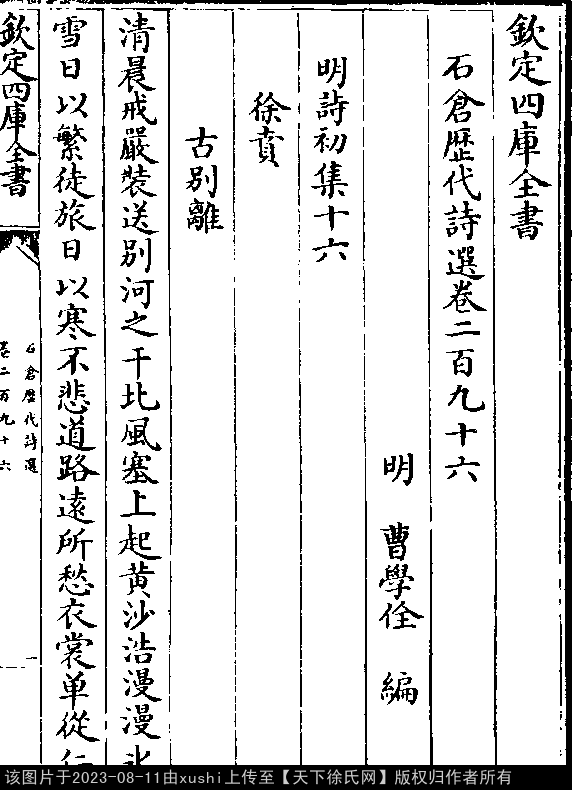 欽定四庫全書
石倉歷代詩選卷二百九十六
明　曹學佺　編
明詩初集十六
徐賁
古别離
清晨戒嚴裝送别河之干北風塞上起黄沙浩漫漫氷
雪日以繁徒旅日以寒不悲道路逺所愁衣裳单從
欽定四庫全書
石倉歴代詩選
卷二百九十六
一
该图片于2023-08-11由xushi上传至【天下徐氏网】版权归作者所有